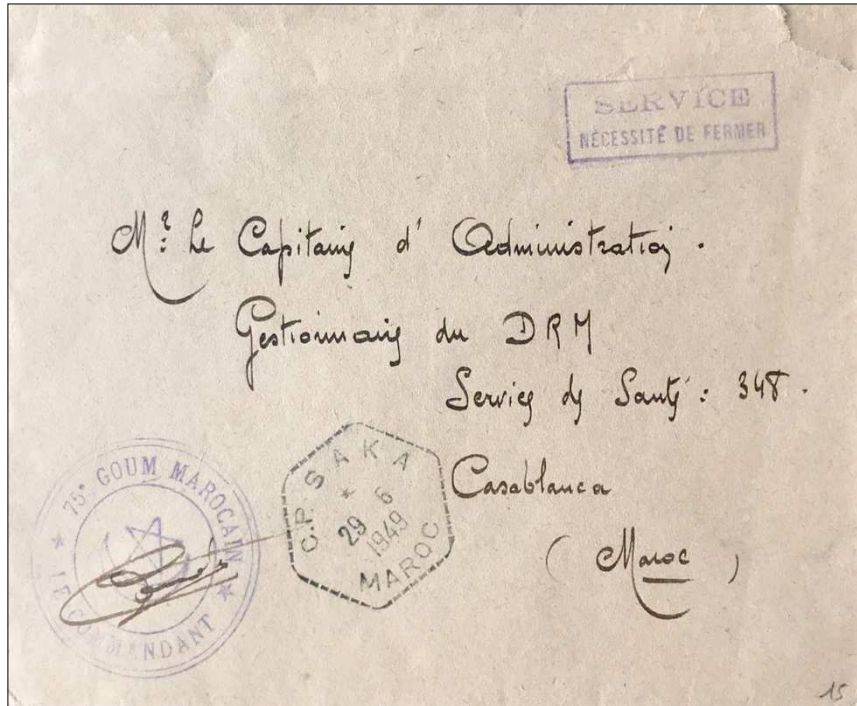 SERVICE
NÉCESSITÉ DE FERMER
Mr: Le Capitaine d'Administration.
Gestionnaire du DRM
Service de Santé: 348.
Casablanca
(Maroc)
75e GOUM MAROCAIN
LE COMMANDANT
C.P. SAKA
29 6
1949
MAROC
15